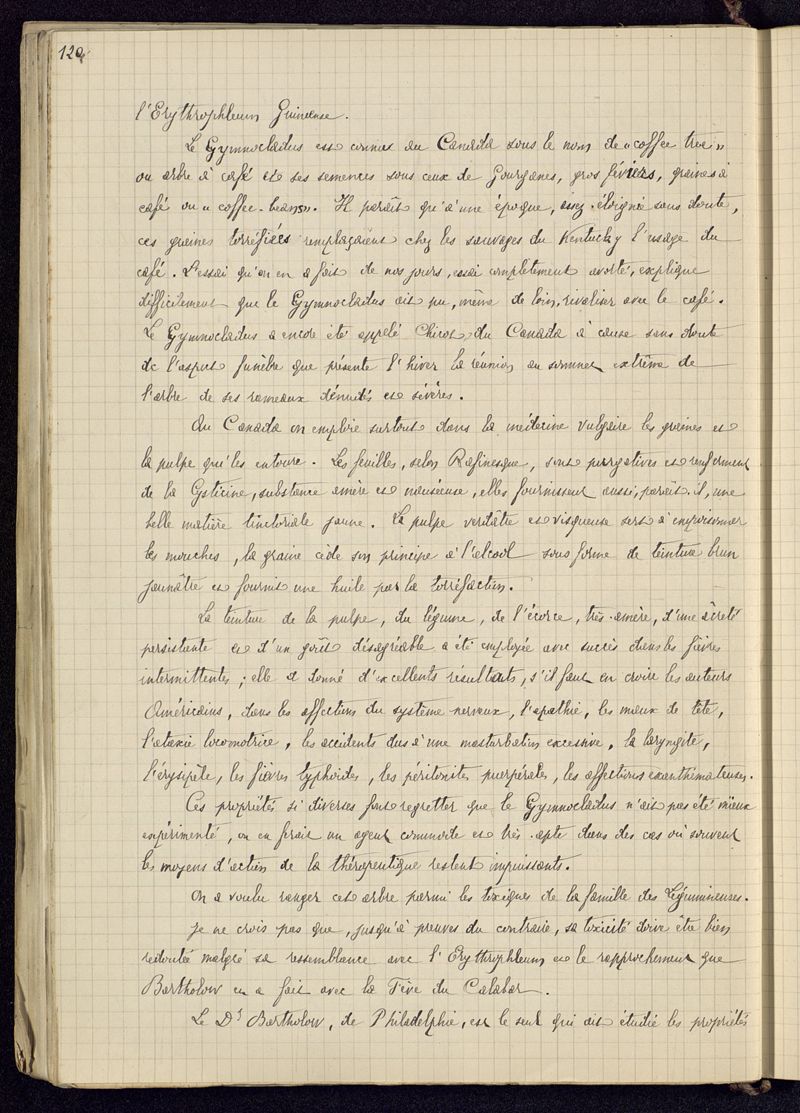 120
l'Erythrophleum Guineense.
Le Gymnocladus est connu au Canada sous le nom de «coffee tree»
ou arbre à café et ses semences sous ceux de Gourganes, gros féviers, graines à
café ou «coffee-beans». Il paraît qu'à une époque, assez éloignée sans doute,
ces graines torréfiées remplaçaient chez les sauvages du Kentucky l'usage du
café. L'essai qu'on en a fait de nos jours, essai complètement avorté, explique
difficilement que le Gymnocladus ait pu, même de loin, rivaliser avec le café.
Le Gymnocladus a encore été appelé Chicot du Canada à cause sans doute
de l'aspect funèbre que présente l'hiver la réunion au sommet extrême de
l'arbre de ses rameaux dénudés et sévères.
Au Canada on emploie surtout dans la médecine vulgaire les graines et
la pulpe qui les entoure. Les feuilles, selon Rafinesque, sont purgatives et renferment
de la Cytisine, substance amère et nauséeuse, elles fournissent aussi, paraît-il, une
belle matière tinctoriale jaune. La pulpe verdâtre et visqueuse sert à empoisonner
les mouches, la graine cède son principe à l'alcool sous forme de teinture brun
jaunâtre et fournit une huile par la torréfaction.
La teinture de la pulpe, du légume, de l'écorce, très-amère, d'une âcreté
persistante et d'un goût désagréable a été employée avec succès dans les fièvres
intermittentes; elle a donné d'excellents résultats, s'il faut en croire les auteurs
Américains, dans les affections du système nerveux, l'apathie, les maux de tête,
l'ataxie locomotrice, les accidents dus à une masturbation excessive, la laryngite,
l'érysipèle, les fièvres typhoïdes, les péritonites puerpérales, les affections exanthémateuses.
Ces propriétés si diverses font regretter que le Gymnocladus n'ait pas été mieux
expérimenté, on en ferait un agent commode et très-apte dans des cas où souvent
les moyens d'action de la thérapeutique restent impuissants.
On a voulu ranger cet arbre parmi les toxiques de la famille des Légumineuses.
Je ne crois pas que, jusqu'à preuves du contraire, sa toxicité doive être bien
redoutée malgré sa ressemblance avec l'Erythrophleum et le rapprochement que
Bartholow en a fait avec la Fève du Calabar.
Le Dr Bartholow, de Philadelphie, est le seul qui ait étudié les propriétés